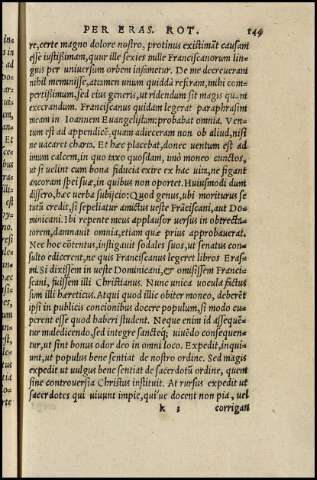 PER ERAS. ROT. 149
re, certe magno dolore nostro, protinus existimāt causam
esse iustissimam, quur ille sexies mille Franciscanorum lin
guis per uniuersum orbem infametur. De me decreuerani
nihil meminisse, attamen unum quiddā referam, mihi com
pertissimum, sed eius generis, ut ridendum sit magis quàm
execrandum. Franciscanus quidam legerat paraphrasim
meam in Ioannem Euangelistam: probabat omnia. Ven
tum est ad appendicē, quam adieceram non ob aliud, nisi
ne uacaret charta. Et hæc placebat, donec uentum est ad
imum calcem, in quo taxo quosdam, unò moneo cunctos,
ut si uelint cum bona fiducia exire ex hac uita, ne figant
ancoram spei suæ, in quibus non oportet. Huiusmodi dum
dissero, hæc uerba subijcio: Quod genus, ubi moriturus se
tutū credit, si sepeliatur amictus ueste Frāciscani, aut Do
minicani. Ibi repente meus applausor uersus in obtrecta
torem, damnauit omnia, etiam quæ prius approbauerat.
Nec hoc cōtentus, instigauit sodales suos, ut senatus con
sulto edicerent, ne quis Franciscanus legeret libros Eras
mi. Si dixissem in ueste Dominicani, et omisissem Franci
scani, fuissem illi Christianus. Nunc unica uocula factus
sum illi hæreticus. Atqui quod illic obiter moneo, deberēt
ipsi in publicis concionibus docere populum, si modo cu
perent esse quod haberi student. Neque enim id assequē
tur maledicendo, sed integre sancteq; uiuēdo consequen
tur, ut sint bonus odor deo in omni loco. Expedit, inqui
unt, ut populus bene sentiat de nostro ordine. Sed magis
expedit ut uulgus bene sentiat de sacerdotū ordine, quem
sine controuersia Christus instituit. At rursus expedit ut
sacerdotes qui uiuunt impie, qui'ue docent non pia, uel
k 3 corrigan